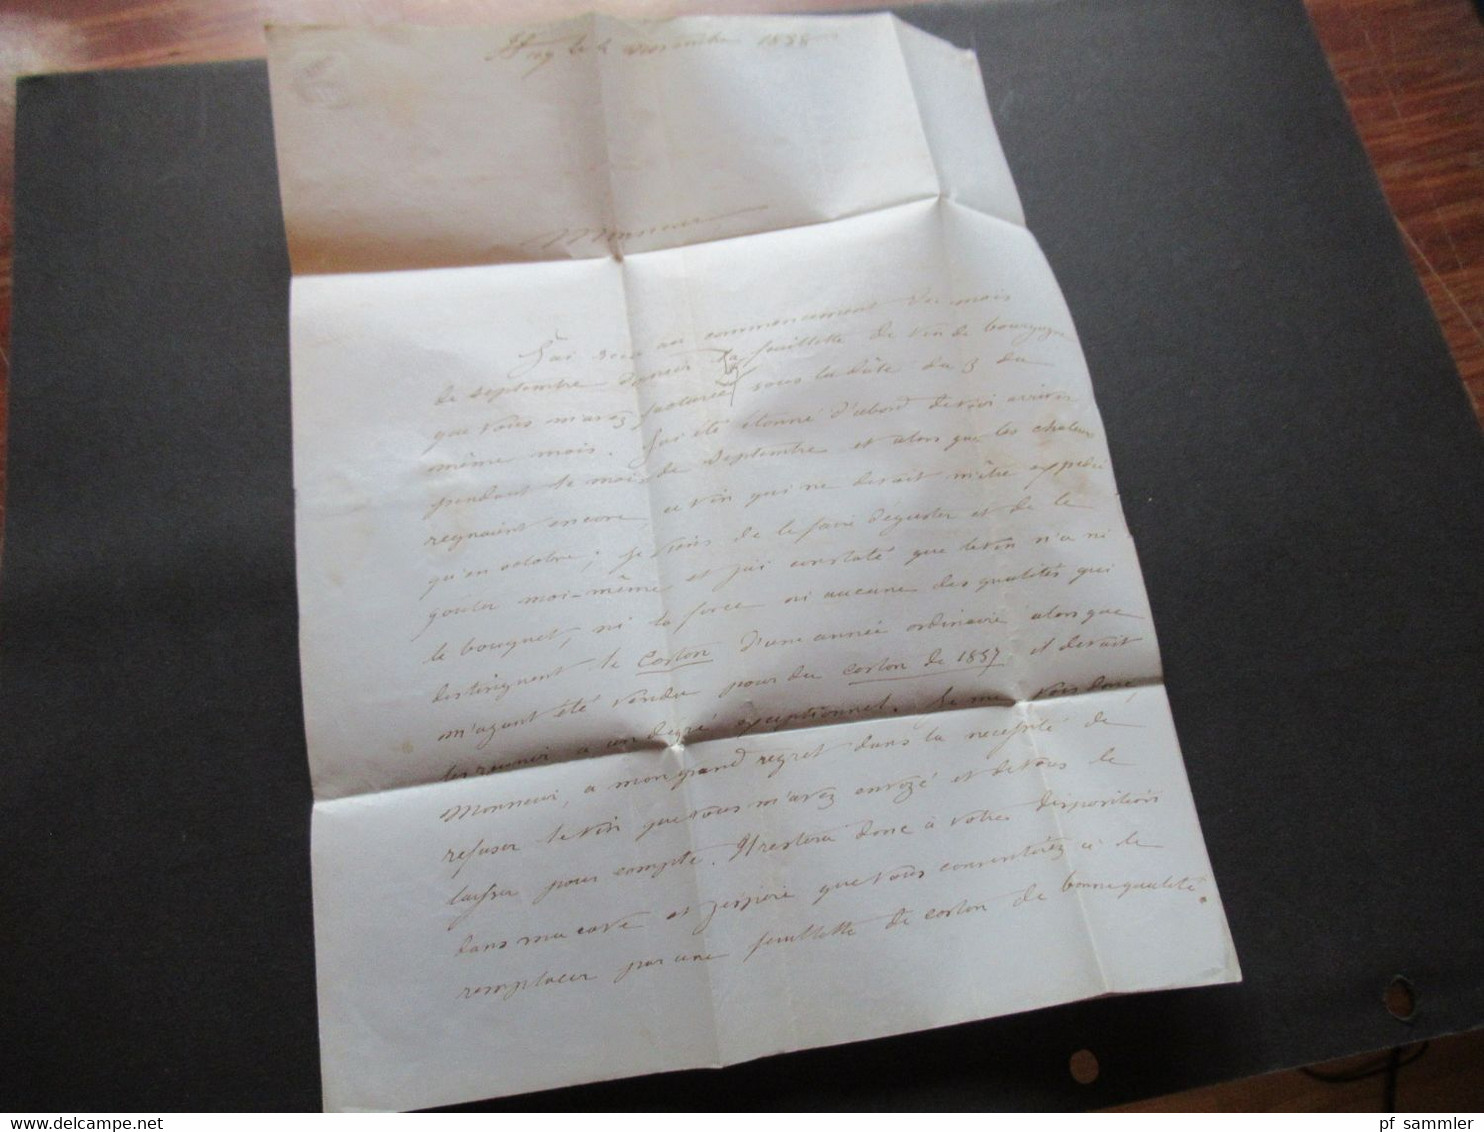 Huy le 4 novembre 1858
Monsieur,
J'ai reçu au commencement du mois
de septembre dernier la feuillette de vin de bourgogne
que vous m'avez facturée sous la date du 3 du
même mois. J'ai été étonné d'abord de voir arriver
pendant le mois de septembre et alors que les chaleurs
regnaient encore, ce vin qui ne devait m'être expédié
qu'en octobre; je viens de le faire déguster et de le
goûter moi-même et j'ai constaté que le vin n'a ni
le bouquet, ni la force ni aucune des qualités qui
distinguent le Corton d'une année ordinaire alors que
m'ayant été vendu pour du corton de 1857 il devait
les réunir à un dégré exceptionnel. Je me vois donc,
Monsieur, à mon grand regret dans la necessité de
refuser le vin que vous m'avez envoyé et de vous le
laisser pour compte. Il restera donc à votre disposition
dans ma cave et j'espère que vous consentirez à le
remplacer par une feuillette de corton de bonne qualité.
pf_sammler